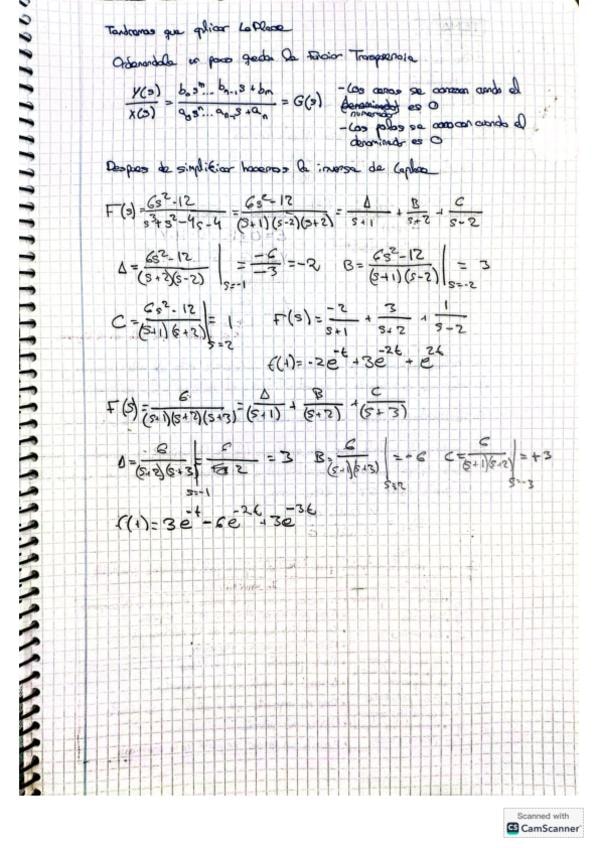 Tendremos que aplicar LaPlace
Ordenandola un poco queda la funcion Transferencia
Y(s)/X(s) = b₀sⁿ... bₙ₋₁s + bₘ / a₀sⁿ... aₙ₋₁s + aₙ = G(s)
- Los ceros se conocen cuando el
denominador numerador es 0
- Los polos se conocen cuando el
denominador es 0
Despues de simplificar hacemos la inversa de Laplace
F(s) = 6s²-12 / s³+s²-4s-4 = 6s²-12 / (s+1)(s-2)(s+2) = A/s+1 + B/s+2 + C/s-2
A = 6s²-12 / (s+2)(s-2) | s=-1 = -6/-3 = -2 B = 6s²-12 / (s+1)(s-2) | s=-2 = 3
C = 6s²-12 / (s+1)(s+2) | s=2 = 1 F(s) = -2/s+1 + 3/s+2 + 1/s-2
f(t) = -2e^-t + 3e^-2t + e^2t
F(s) = 6 / (s+1)(s+2)(s+3) = A/(s+1) + B/(s+2) + C/(s+3)
A = 6 / (s+2)(s+3) | s=-1 = 6/2 = 3 B = 6 / (s+1)(s+3) | = -6 C = 6 / (s+1)(s+2) | s=-3 = +3
f(t) = 3e^-t - 6e^-2t + 3e^-3t
Scanned with
CS CamScanner